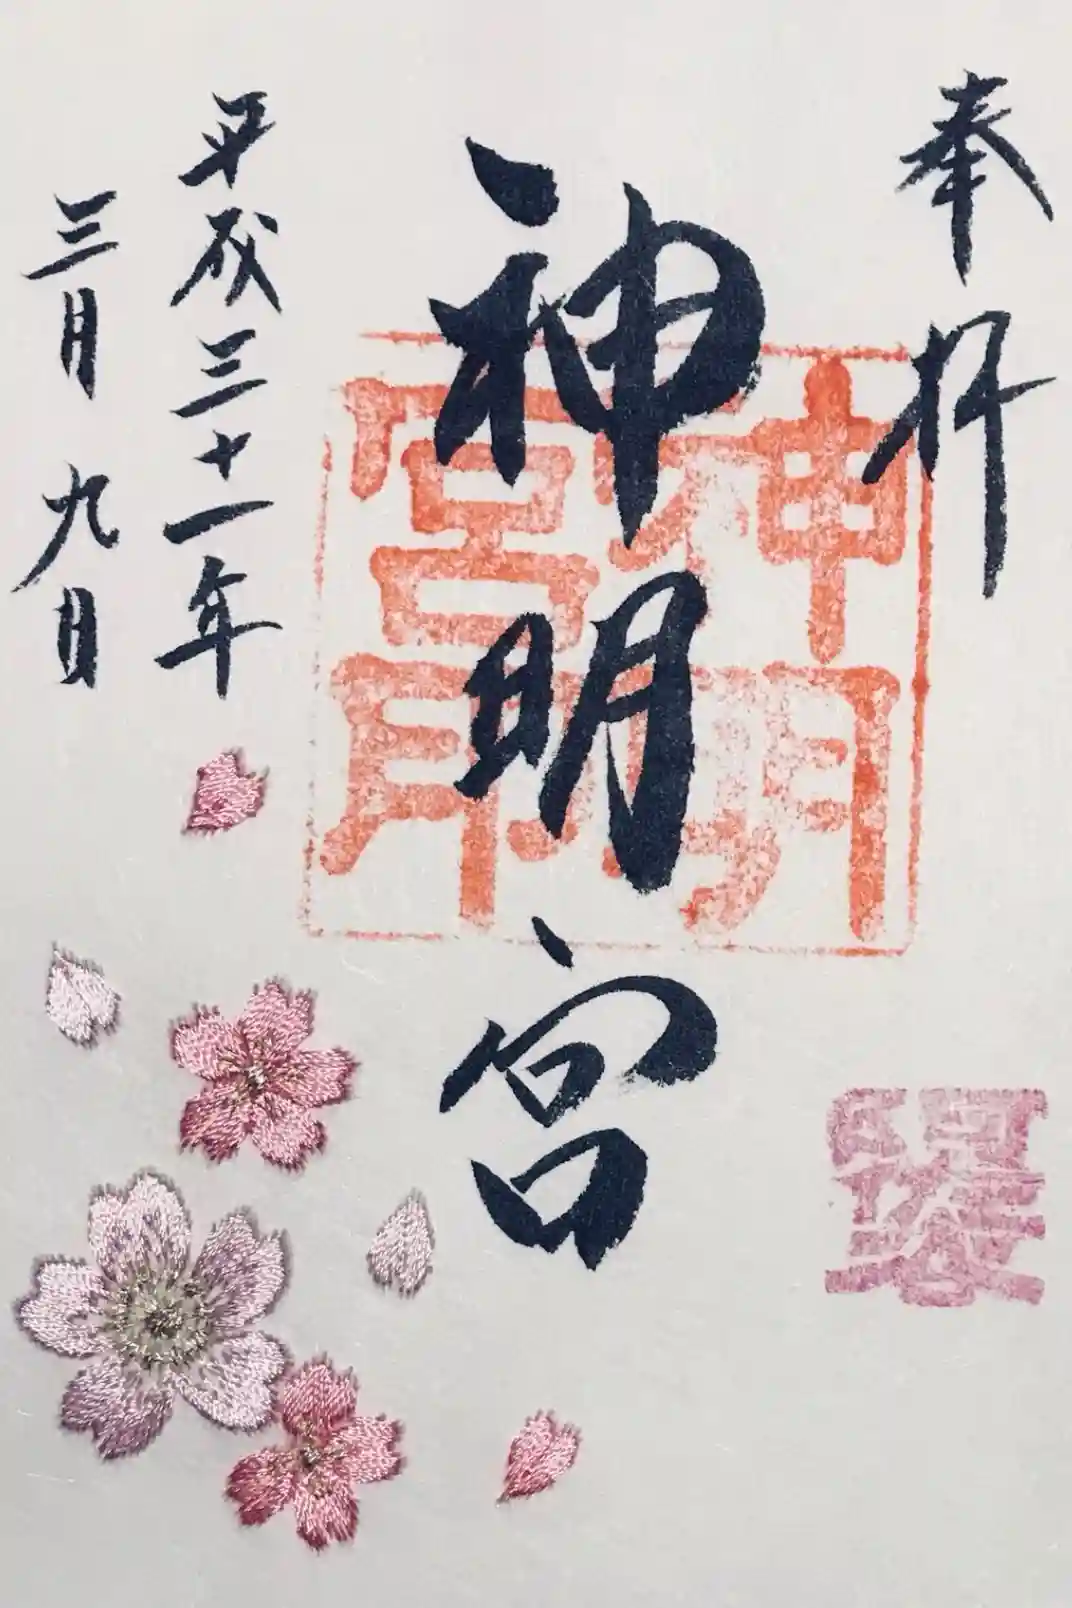 奉拝
神明宮
平成三十一年
三月九日
神明
宮印